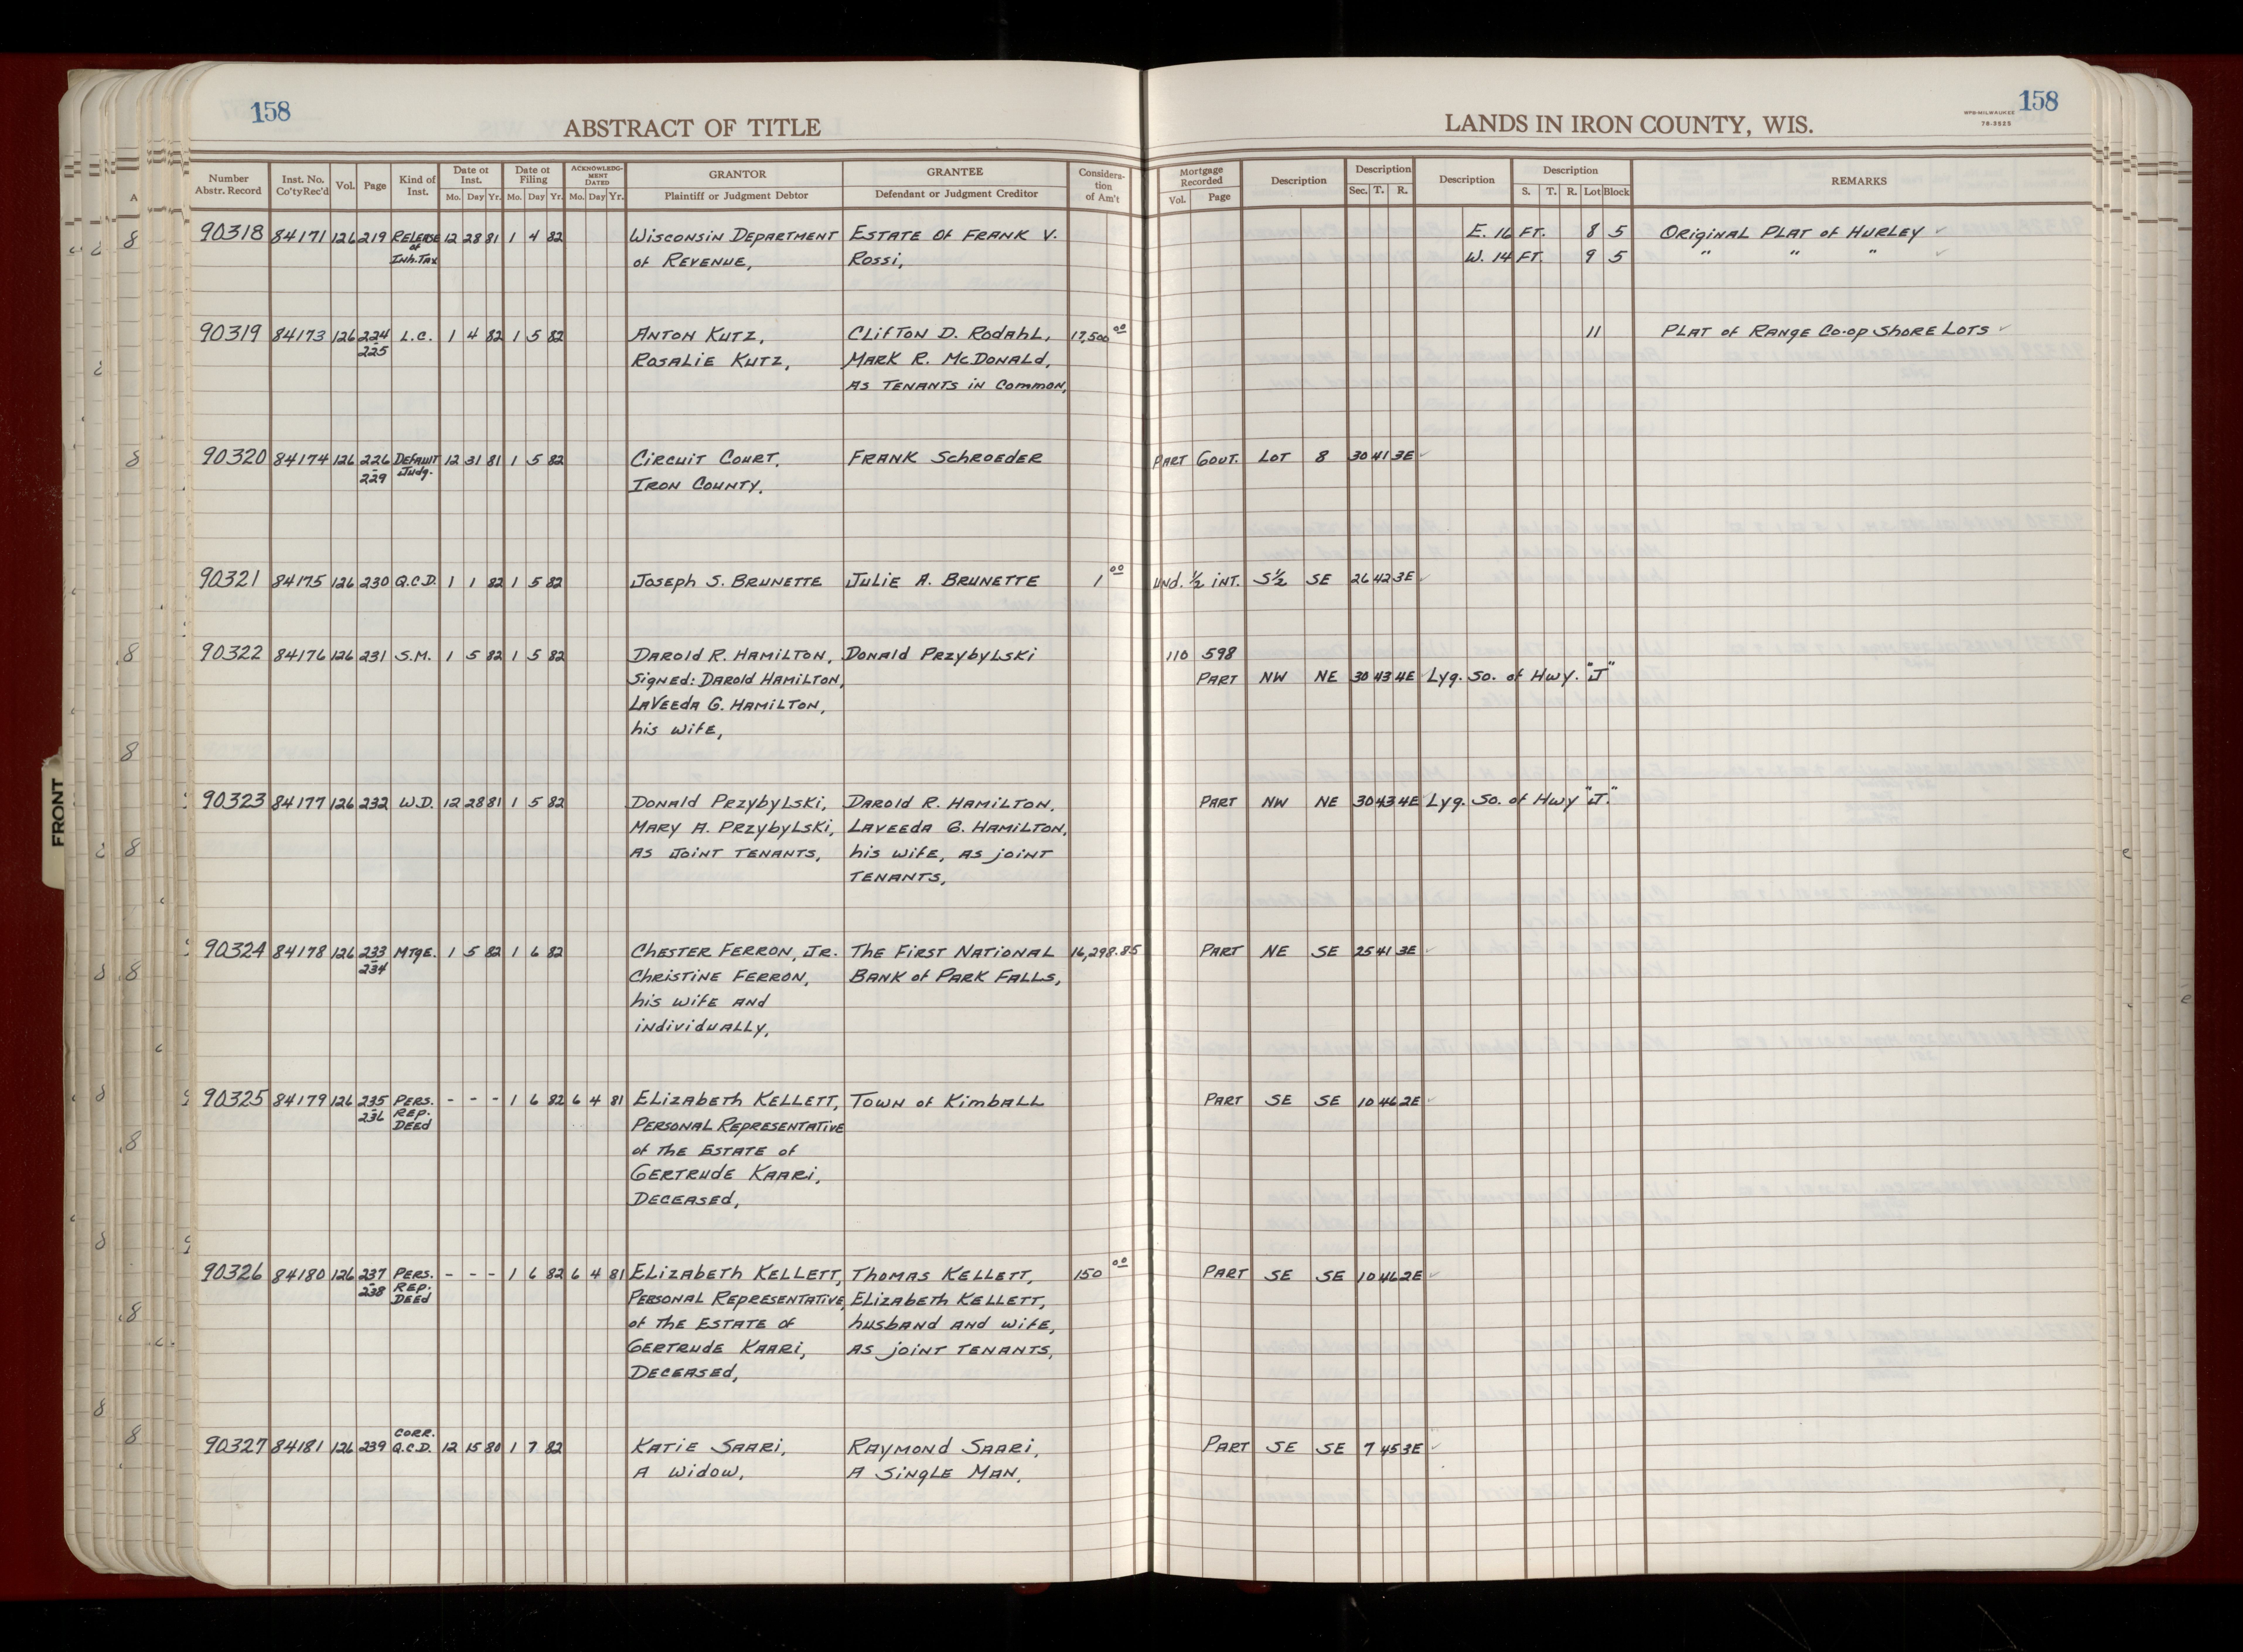 158
ABSTRACT OF TITLE
LANDS IN IRON COUNTY, WIS.
WPB-MILWAUKEE
78-3525
158
Number Abstr. Record | Inst. No. Co'ty Rec'd | Vol. | Page | Kind of Inst. | Date of Inst. Mo. Day Yr. | Date of Filing Mo. Day Yr. | ACKNOWLEDGMENT DATED Mo. Day Yr. | GRANTOR Plaintiff or Judgment Debtor | GRANTEE Defendant or Judgment Creditor | Consideration of Am't | Mortgage Recorded Vol. Page | Description | Description Sec. T. R. | Description | Description S. T. R. Lot Block | REMARKS
90318 84171 126 219 RELEASE 12 28 81 1 4 82 WISCONSIN DEPARTMENT ESTATE OF FRANK V. E. 16 FT. 8 5 ORIGINAL PLAT of HURLEY ✓
of Inh. TAX of REVENUE, ROSSI, W. 14 FT. 9 5 " " " ✓
90319 84173 126 224 L.C. 1 4 82 1 5 82 ANTON KUTZ, CLIFTON D. RODAHL, 17,500 00 11 PLAT of RANGE CO-OP SHORE LOTS ✓
- 225 ROSALIE KUTZ, MARK R. McDONALD,
AS TENANTS IN COMMON,
90320 84174 126 226 DEFAULT 12 31 81 1 5 82 CIRCUIT COURT, FRANK SCHROEDER PART GOVT. LOT 8 30 41 3E ✓
- 229 Judg. IRON COUNTY,
90321 84175 126 230 Q.C.D. 1 1 82 1 5 82 JOSEPH S. BRUNETTE JULIE A. BRUNETTE 1 00 UNd. ½ INT. S½ SE 26 42 3E ✓
90322 84176 126 231 S.M. 1 5 82 1 5 82 DAROLD R. HAMILTON, DONALD PRZYBYLSKI 110 598
SIGNED: DAROLD HAMILTON, PART NW NE 30 43 4E Lyg. So. of Hwy. "J"
LAVEEDA G. HAMILTON,
his WIFE,
90323 84177 126 232 W.D. 12 28 81 1 5 82 DONALD PRZYBYLSKI, DAROLD R. HAMILTON, PART NW NE 30 43 4E Lyg. So. of Hwy "J."
MARY A. PRZYBYLSKI, LAVEEDA G. HAMILTON,
AS JOINT TENANTS, his WIFE, AS JOINT
TENANTS,
90324 84178 126 233 MTGE. 1 5 82 1 6 82 CHESTER FERRON, JR. THE FIRST NATIONAL 16,298.85 PART NE SE 25 41 3E ✓
- 234 CHRISTINE FERRON, BANK of PARK FALLS,
his WIFE AND
INDIVIDUALLY,
90325 84179 126 235 PERS. - - - 1 6 82 6 4 81 ELIZABETH KELLETT, TOWN of KIMBALL PART SE SE 10 46 2E ✓
- 236 REP. DEED PERSONAL REPRESENTATIVE
of THE ESTATE of
GERTRUDE KAARI,
DECEASED,
90326 84180 126 237 PERS. - - - 1 6 82 6 4 81 ELIZABETH KELLETT, THOMAS KELLETT, 150 00 PART SE SE 10 46 2E ✓
- 238 REP. DEED PERSONAL REPRESENTATIVE, ELIZABETH KELLETT,
of THE ESTATE of husband AND WIFE,
GERTRUDE KAARI, AS JOINT TENANTS,
DECEASED,
90327 84181 126 239 CORR. Q.C.D. 12 15 80 1 7 82 KATIE SAARI, RAYMOND SAARI, PART SE SE 7 45 3E ✓
A WIDOW, A SINGLE MAN,
FRONT